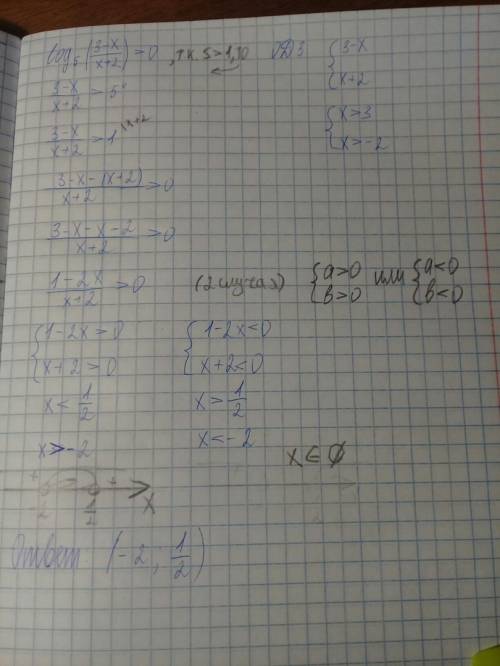 log₅(3-x/x+2) > 0, т.к. 5>1, то ОДЗ {3-x
{x+2
3-x/x+2 > 5⁰
3-x/x+2 > 1 \x+2
{x>3
{x>-2
3-x-(x+2)/x+2 > 0
3-x-x-2/x+2 > 0
1-2x/x+2 > 0 (2 случая) {a>0 или {a<0
{b>0 {b<0
{1-2x>0 {1-2x<0
{x+2>0 {x+2<0
x< 1/2 x> 1/2
x>-2 x<-2 x∈∅
+ - + 
-2 1/2 x
Ответ (-2; 1/2)